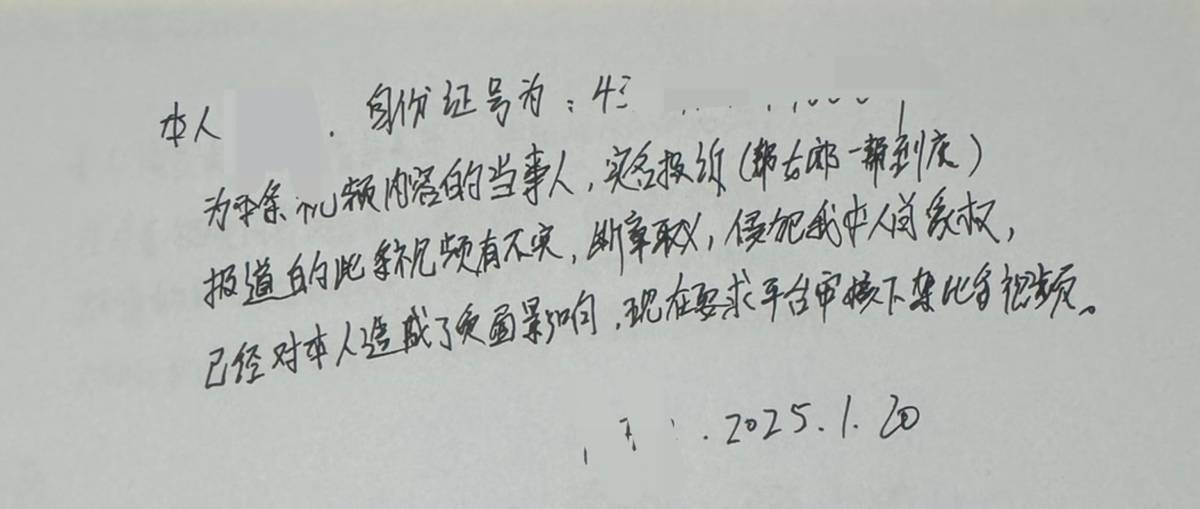 本人 . 身份证号为:43
为本条视频内容的当事人,实名投诉(帮女郎一帮到底)
报道的此条视频有不实,断章取义,侵犯我本人肖象权,
已经对本人造成了负面影响,现在要求平台审核下架此条视频。
2025.1.20